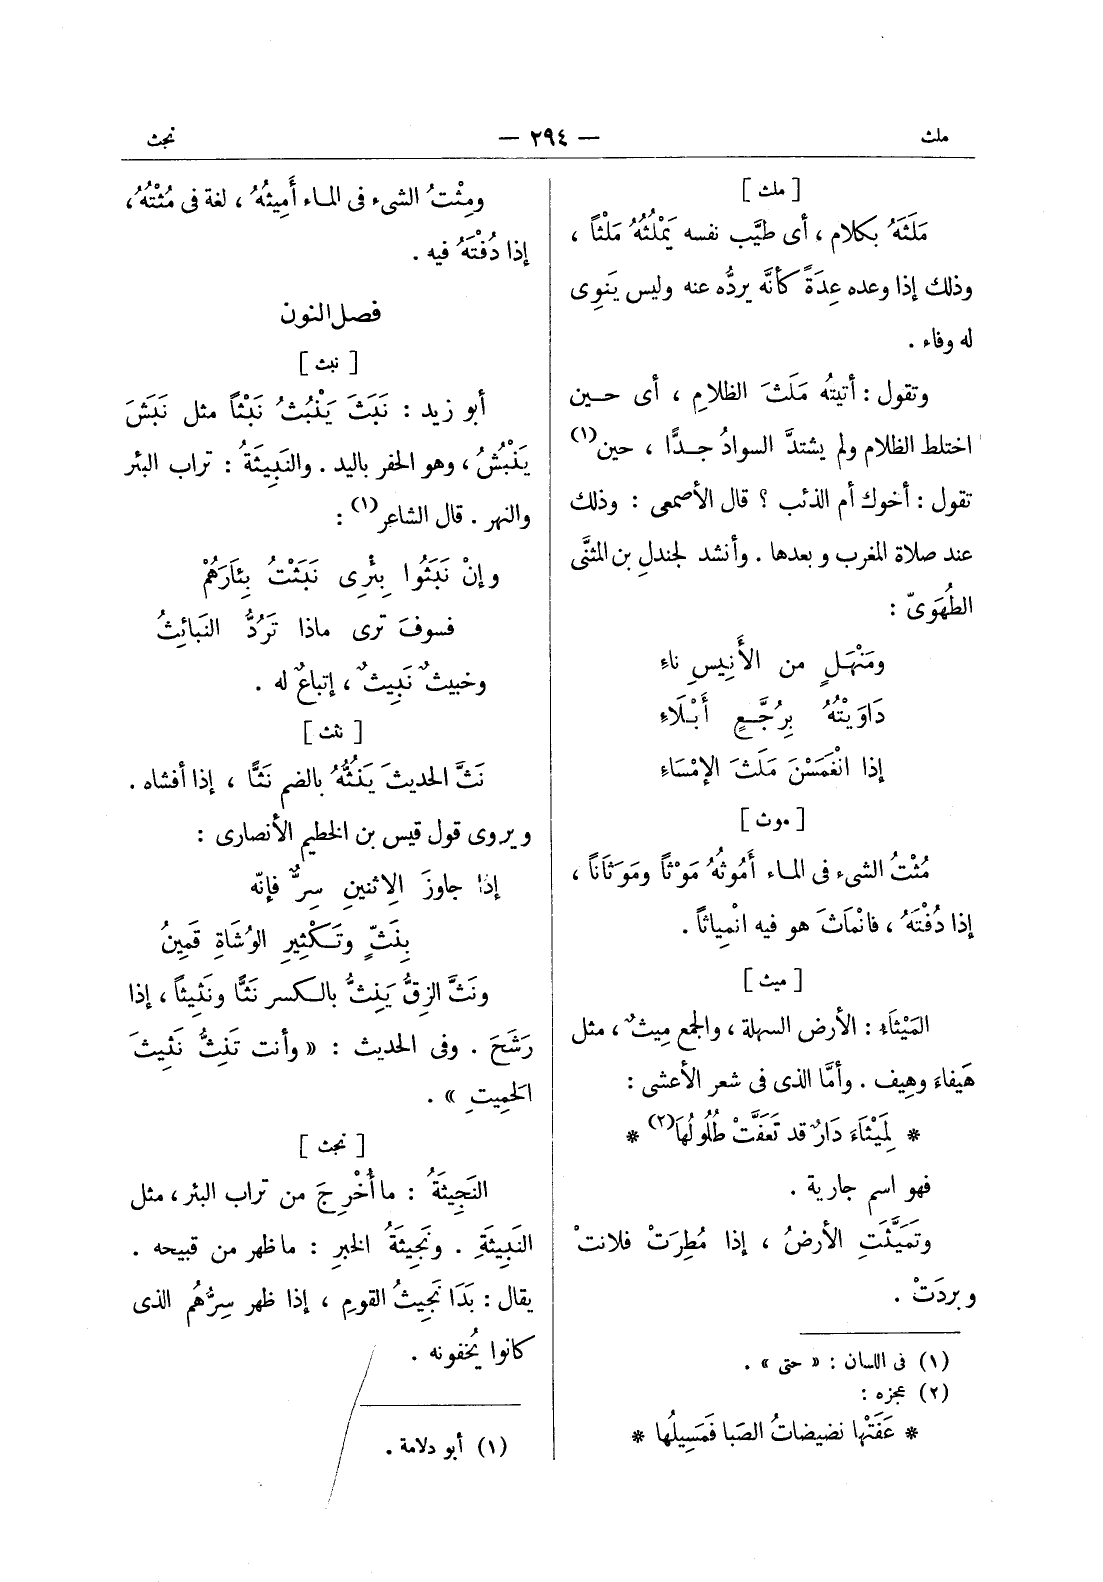 ملث — ٢٩٤ — نجث
[ ملث ]
مَلَثَهُ بكلام ، أى طيَّب نفسه يَمْلُثُهُ مَلْثاً ،
وذلك إذا وعده عِدَةً كأنَّه يردُّه عنه وليس يَنوِى
له وفاء .
وتقول : أتيتُه مَلَثَ الظلامِ ، أى حــين
اختلط الظلام ولم يشتدَّ السوادُ جـدًّا ، حين(١)
تقول : أخوك أم الذئب ؟ قال الأصمعى : وذلك
عند صلاة المغرب وبعدها . وأنشد لجندلِ بن المثنَّى
الطُهَوِىّ :
ومَنْهَـلٍ من الأَنِيسِ ناءِ
دَاوَيْتُهُ بِرُجَّـعٍ أَبْـلَاءِ
إذا انْغَمَسْنَ مَلَثَ الإمْسَاءِ
[ موث ]
مُثْتُ الشىء فى المـاء أَمُوثُهُ مَوْثاً ومَوَثَاناً ،
إذا دُفْتَهُ ، فانْمَاثَ هو فيه انْمِياثاً .
[ ميث ]
المَيْثَاءِ : الأرض السهلة ، والجمع مِيثٌ ، مثل
هَيفاءَ وهِيف . وأمَّا الذى فى شعر الأعشى :
* لِمَيْثَاءَ دَارٌ قد تَعَفَّتْ طُلُولُهَا(٢) *
فهو اسم جارية .
وتَمَيَّثَتِ الأرضُ ، إذا مُطِرَتْ فلانتْ
وبردَتْ .
(١) فى اللسان : « حتى » .
(٢) عجزه :
* عَفَتْها نضيضاتُ الصَبا فَمَسِيلُها *
ومِثْتُ الشىء فى المـاء أَمِيثُهُ ، لغة فى مُثْتُهُ ،
إذا دُفْتَهُ فيه .
فصل النون
[ نبث ]
أبو زيد : نَبَثَ يَنْبُثُ نَبْثاً مثل نَبَشَ
يَنْبُشُ ، وهو الحفر باليد . والنَبِيثَةُ : تراب البئر
والنهر . قال الشاعر(١) :
وإنْ نَبَثُوا بِئْرِى نَبَثْتُ بِئارَهُمْ
فسوفَ ترى ماذا تَرُدُّ النَبائِثُ
وخبيثٌ نَبِيثٌ ، إتباعٌ له .
[ نثث ]
نَثَّ الحديثَ يَنُثُّهُ بالضم نَثًّا ، إذا أفشاه .
ويروى قول قيس بن الخطيم الأنصارى :
إذا جاوزَ الإثنينِ سِرٌّ فإنّه
بِنَثٍّ وتَكْثِيرِ الوُشَاةِ قَمِينُ
ونَثَّ الزِقُّ يَنِثُّ بالـكسر نَثًّا ونَثِيثاً ، إذا
رَشَحَ . وفى الحديث : « وأنت تَنِثُّ نَثِيثَ
الحَمِيتِ » .
[ نجث ]
النَجِيثَةُ : ما أُخْرِجَ من تراب البئر ، مثل
النَبِيثَةِ . ونَجِيثَةُ الخبرِ : ما ظهر من قبيحه .
يقال : بَدَا نَجِيثُ القومِ ، إذا ظهر سِرُّهُم الذى
كانوا يُخفونه .
(١) أبو دلامة .